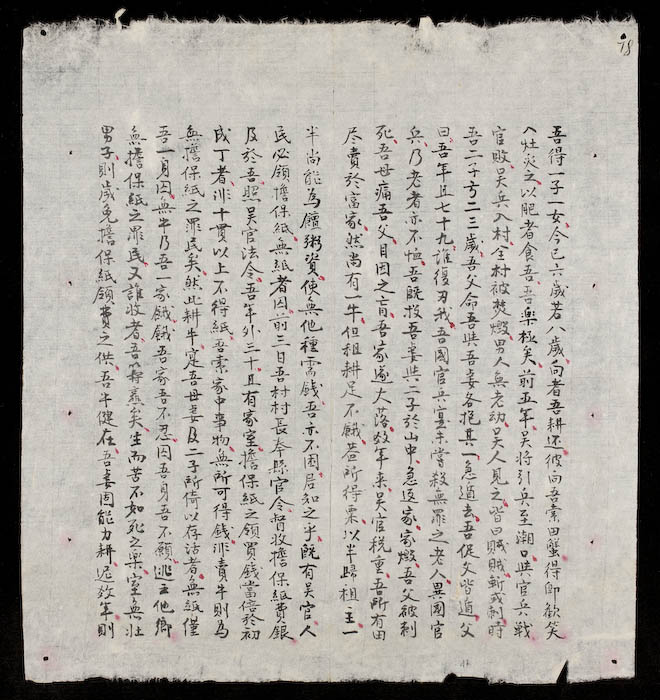 78
吾得一子一女今已六歲若八歲向者吾耕还彼向吾索田蟹得卽歡笑
入灶炙之以肥者食吾吾樂極矣前五年吴将引兵至潮口與官兵戰
官敗吴兵入村全村被焚燬男人無老幼吴人見之皆曰賊賊斬或刺時
吾二子方二三歲吾父命吾與吾妻各抱其一急遁去吾促父皆遁父
曰吾年且七十九誰復刃我吾國官兵寔未嘗殺無罪之老人異國官
兵乃老者亦不恤吾旣投吾妻與二子於山中急返家家燬吾父被刺
死吾母痛吾父目因之盲吾家遂大落数年来吴官税重吾所有田
尽賣於富家然尚有一牛但租耕足不餓蓋所得粟以半歸租主一
半尚能為饘粥資使無他種需錢吾亦不困居知之乎旣有吴官人
民必領擔保紙無紙者囚前三日吾村村長奉縣官令督收擔保紙費銀
及於吾照吴官法令吾年外三十且有家室擔保紙之領買錢當倍於初
成丁者非十貫以上不得紙吾索家中事物無所可得錢非賣牛則為
無擔保紙之罪民矣然此耕牛寔吾母妻及二子所倚以存活者無紙僅
吾一身囚無牛乃吾一家餓餓吾家吾不忍囚吾身吾不願逃去他鄉
無擔保紙之罪民又誰收者吾慮矣生而苦不如死之樂室無壯
男子則歲免擔保紙領費之供吾牛健在吾妻固能力耕迟数年則